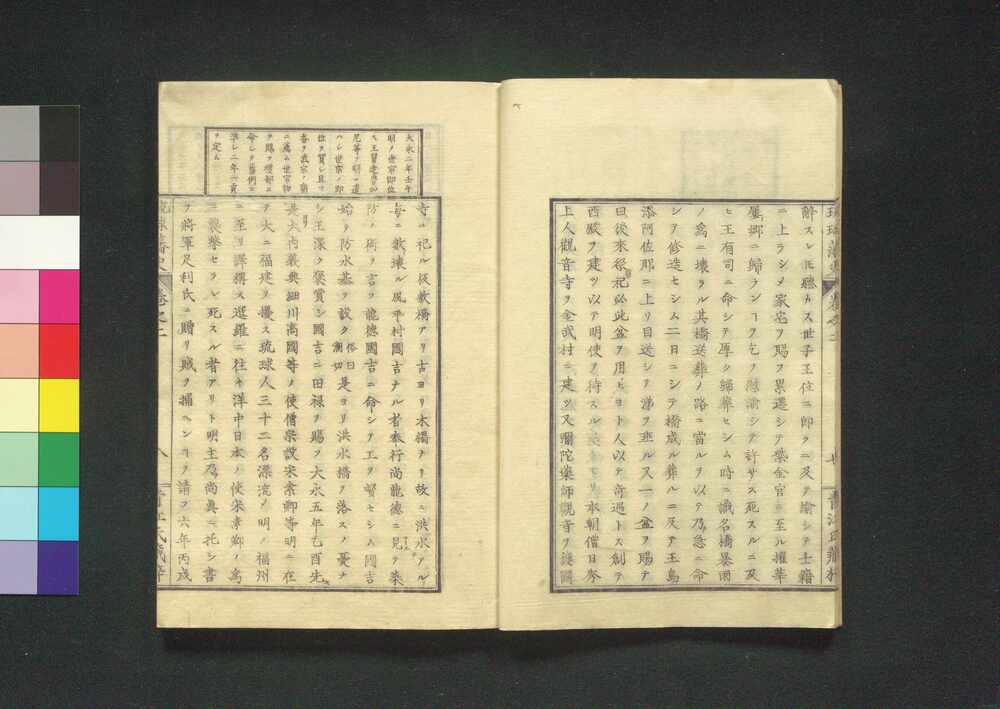 琉球藩史 卷之二 七 青江氏藏梓
辭スレ𪜈聽カス世子王位ニ即クニ及テ諭シテ士籍
ニ上ラシメ家宅ヲ賜フ累遷シテ紫金官ニ至ル擢華
屢郷ニ歸ランヿヲ乞フ慰諭シテ許サス死スルニ及
ヒ王有司ニ命シテ厚ク歸葬セシム時ニ識名橋暴雨
ノ爲ニ壞ラル其橋送葬ノ路ニ當ルヲ以テ乃急ニ命
シテ修造セシム二日ニシテ橋成ル葬ルニ及テ王烏
添阿佐那ニ上リ目送シテ涕ヲ垂ル又一ノ盆ヲ賜テ
曰後來祭祀必此盆ヲ用ヒヨト人以テ奇遇トス創テ
西殿ヲ建ツ以テ明使ヲ待スル 本朝僧日琴
上人觀音寺ヲ金武村ニ建ツ又彌陀藥師觀音ヲ護國
大永二年壬午
明ノ世宗即位
ス王賢老等ヲ
尼等ヲ明ニ遣
ハシ世宗ノ即
位ヲ賀シ且ツ
香ヲ武宗ノ廟
ニ薦ム世宗物
ヲ賜ヲ禮部ニ
命シテ舊例ニ
準シ二年一貢
ヲ定ム
寺ニ祀ル坂敷橋アリ古ヨリ木橋タリ故ニ洪水アル
毎ニ數壞ル風平村國吉ナル者奉行尚龍德ニ見テ築
防ノ術ヲ言フ龍德國吉ニ命シテ工ヲ督セシム國吉
始テ防水基ヲ設ク 俗曰潮切 是ヨリ洪水橋ヲ落スノ憂ナ
シ王深ク褒賞シ國吉ニ田祿ヲ賜フ大永五年乙酉先
是大内義興細川高國等ノ使僧宗設宋素卿等明ニ在
テ大ニ福建ヲ擾ス琉球人三十二名漂流ノ明ノ福州
ニ至リ譯撰ス暹羅ニ往キ洋中日本ノ使宋素卿ノ爲
ニ襲擊セラレ死スル者アリト明主乃尚眞ニ托シ書
ヲ將軍足利氏ニ贈リ賊ヲ捕ヘンヿヲ請フ六年丙戌
琉球藩史 卷之二 八 青江氏藏梓